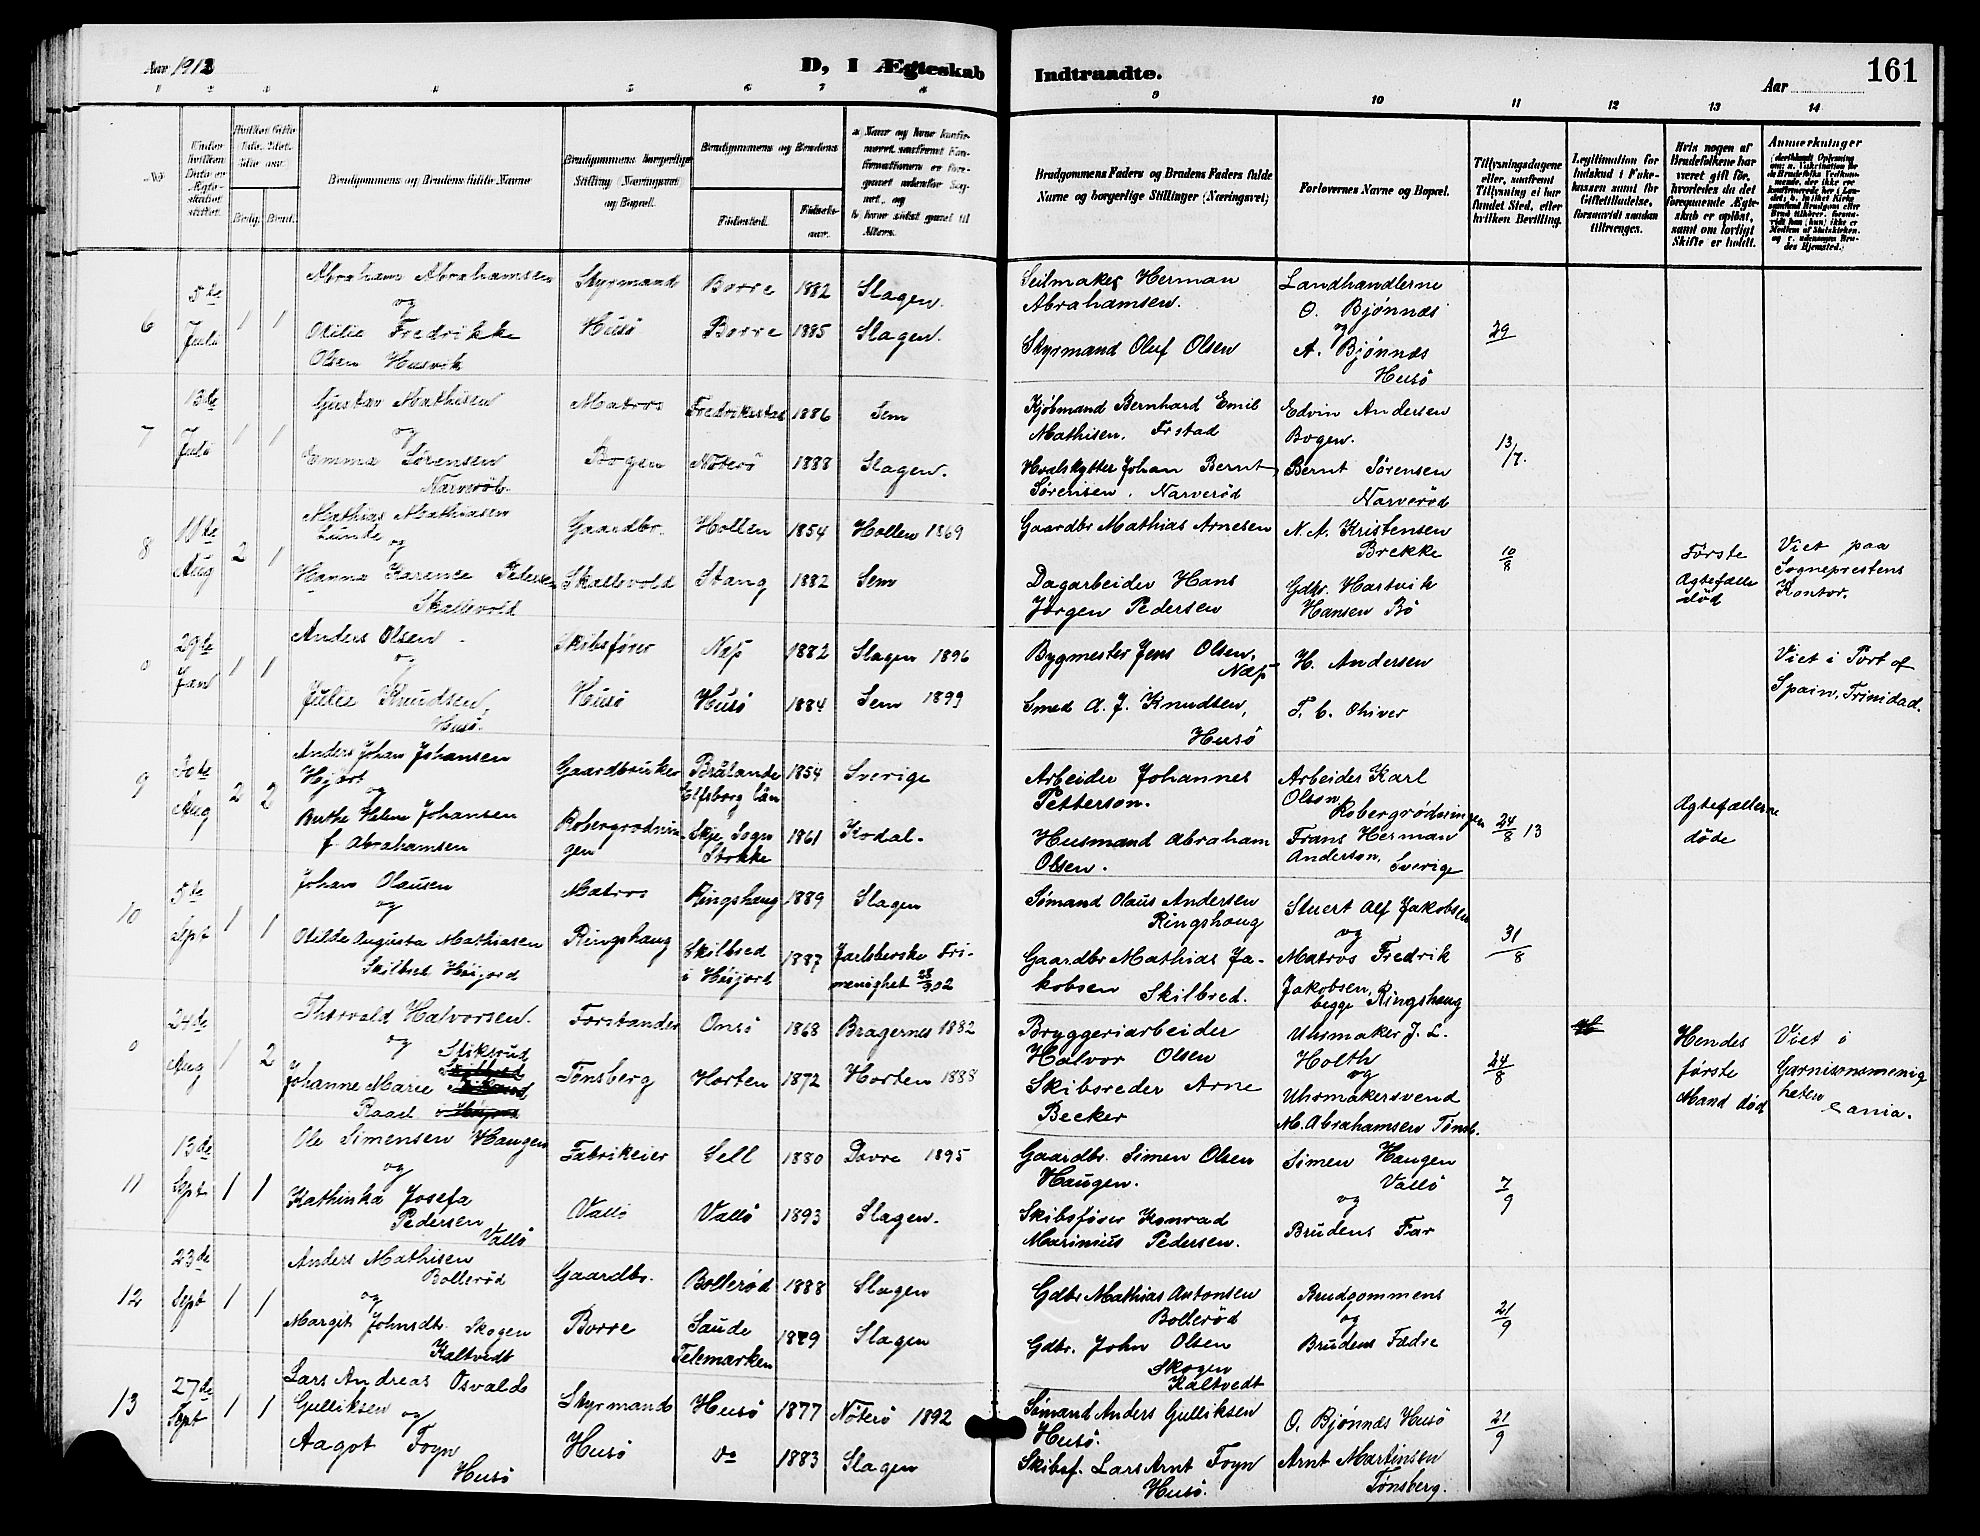 Aar 1913
D, I Ægteskab Indtraadte.
Aar
161
1 2 3 4 5 6 7 8 9 10 11 12 13 14
No
Under hvilken Dato er Ægteskabet stiftet.
Brudg. Brud.
Brudgommens og Brudens fulde Navne
Brudgommens borgerlige Stilling (Næringsvei) og Bopæl.
Brudgommens og Brudens
Fødested.
Fødselsaar.
Brudgommens Faders og Brudens Faders fulde Navne og borgerlige Stillinger (Næringsvei)
Forlovernes Navne og Bopæl.
Tillysningsdagene eller, saafremt Tillysning ei har fundet Sted, efter hvilken Bevilling.
Legitimation for Indskud i Enkekassen samt for Giftetilladelse, forsaavidt saadan tiltrænges.
Hvis nogen af Brudefolkene har været gift før, hvorledes da det foregaaende Ægteskab er opløst, samt om lovligt Skifte er holdt.
Anmerkninger
6
5te Juli
1 1
Abraham Abrahamsen
og
Otilie Fredrikke
Olsen Husvik
Styrmand
Husö
Borre 1882 Slagen.
Borre 1885 Slagen.
Seilmaker Herman
Abrahamsen.
Styrmand Oluf Olsen
Landhandlerne
O. Bjönnæs
og
A. Bjönnæs
Husö
29
7
13de Juli
1 1
Gustav Mathisen
og
Emma Sörensen
Narveröd.
Matros
Bogen
Fredrikstad 1886 Sem
Nöterö 1888 Slagen.
Kjöbmand Bernhard Emil
Mathisen. Frstad
Hvalskytter Johan Bernt
Sörensen. Narveröd
Edvin Andersen
Bogen.
Bernt Sörensen
Narveröd
13/7.
8
10de Aug
2 1
Mathias Mathiasen
Lunde og
Hanna Karence Pedersen
Skallevold
Gaardbr.
Skallevold
Hollen 1854 Hollen 1869
Stang 1882 Sem
Gaardbr Mathias Arnesen
Dagarbeider Hans
Jørgen Pedersen
N. A. Kristensen
Brekke
Gdbr. Hartvik
Hansen Bö
10/8
Første
Ægtefælle
död
Viet paa
Sogneprestens
Kontor.
0
29te Jan
1 1
Anders Olsen
og
Julie Knudsen,
Husö.
Skibsfører
Husö
Næs 1882 Slagen 1896
Husö 1884 Sem 1899
Bygmester Jens Olsen,
Næs
Smed A. J. Knudsen,
Husö
H. Andersen
T. C. Ohiver
Viet i Port of
Spain, Trinidad.
9
30te Aug
2 2
Anders Johan Johansen
Hjort
og
Berthe Helene Johansen
f. Abrahamsen
Gaardbruker
Robergrödningen
Brålanda Elfsborg län 1854 Sverige
Skje Sogn Stokke 1861 Kodal.
Arbeider Johannes
Petterson.
Husmand Abraham
Olsen.
Arbeider Karl
Olson,
Robergrødningen
Frans Herman
Anderson, Sverige
24/8 13
Ægtefællerne
döde
10
5te Sept
1 1
Johan Olausen
og
Otilde Augusta Mathiasen
Skilbred Höijord
Matros
Ringshaug
Ringshaug 1889 Slagen
Skilbred i Höijord 1887 Jarlsberske Frimenighet 28/9 02
Sømand Olaus Andersen
Ringshaug
Gaardbr Mathias Jakobsen Skilbred.
Stuert Alf Jakobsen
og
Matros Fredrik
Jakobsen,
begge Ringshaug
31/8
0
24de Aug
1 2
Thorvald Halvorsen.
og Stiksrud
Johanne Marie
Raael
Forstander
Tönsberg
Onsö 1868 Bragernes 1882
Horten 1872 Horten 1888
Bryggeriarbeider
Halvor Olsen
Skibsreder Arne
Becker
Uhrmaker J. L.
Holth
og
Uhrmakersvend
M. Abrahamsen Tönsb.
24/8
Hendes
første
Mand död
Viet i
Garnisonsmenigheten
Cania.
11
13de Sept
1 1
Ole Simensen Haugen
og
Kathinka Josefa
Pedersen
Vallö
Fabrikeier
Vallö
Sell 1880 Dovre 1895
Vallö 1893 Slagen.
Gaardbr. Simen Olsen
Haugen.
Skibsfører Konrad
Marinius Pedersen.
Simen Haugen
Vallö
og
Brudens Far
7/9
12
23de Sept
1 1
Anders Mathisen
Bolleröd
og
Margit Johnsdtr. Skogen
Kaltvedt
Gaardbr.
Borre
Bolleröd 1888 Slagen
Saude Telemarken 1889 Slagen
Gdbr Mathias Antonsen
Bolleröd
Gdbr. John Olsen
Skogen
Kaltvedt
Brudgommens
og
Brudens Fædre
21/9
13
27de Sept
1 1
Lars Andreas Osvald
Gulliksen og
Aagot Foyn
Husö
Styrmand
Husö
Husö 1877 Nöterö 1892
do 1883 Slagen
Sömand Anders Gulliksen
Husö.
Skibsf. Lars Arnt Foyn
Husö.
O. Bjönnæs Husö
Arnt Martinsen
Tønsberg.
21/9